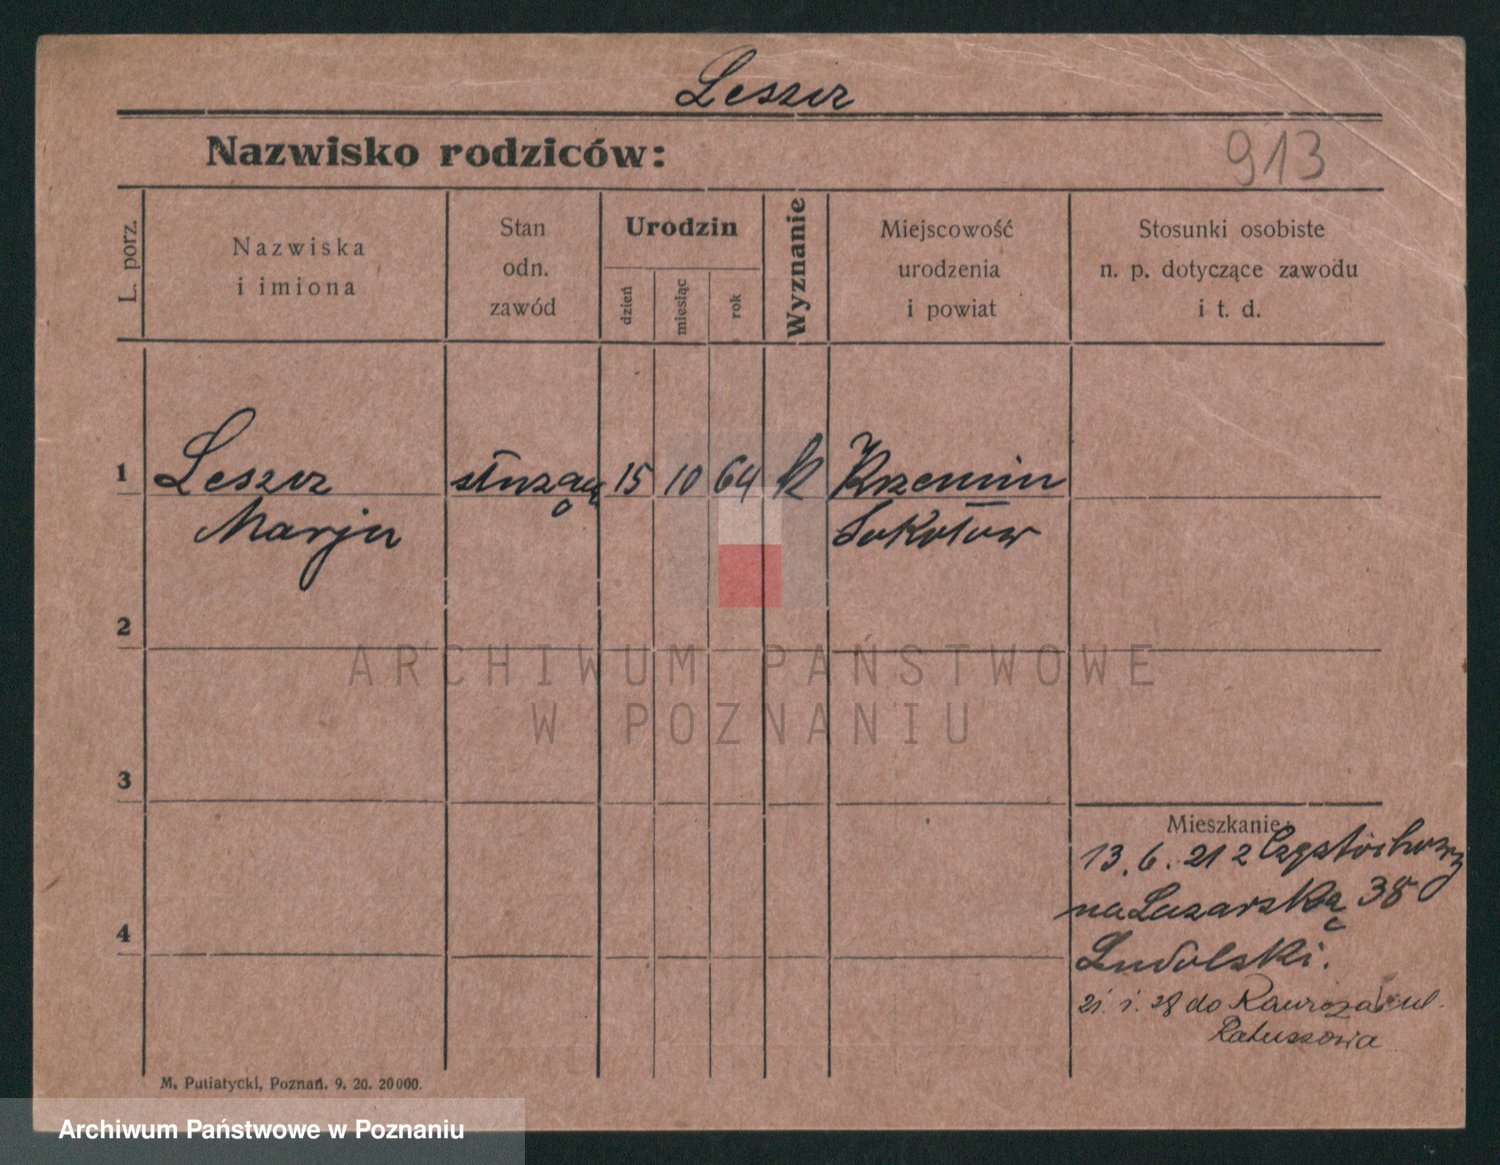 Leszcz
Nazwisko rodziców:
913
L. porz.
Nazwiska
i imiona
Stan
odn.
zawód
Urodzin
dzień
miesiąc
rok
Wyznanie
Miejscowość
urodzenia
i powiat
Stosunki osobiste
n. p. dotyczące zawodu
i t. d.
1 Leszcz służąca 15 10 64 k Krzemin
Marja Sokołow
2
ARCHIWUM PAŃSTWOWE
W POZNANIU
3
Mieszkanie:
13.6.21 z Częstochowy
na Łazarską 38
4
21. 1. 28 do Rawicza ul.
Ratuszowa
M. Putiatycki, Poznań. 9. 20. 20 000.
Archiwum Państwowe w Poznaniu